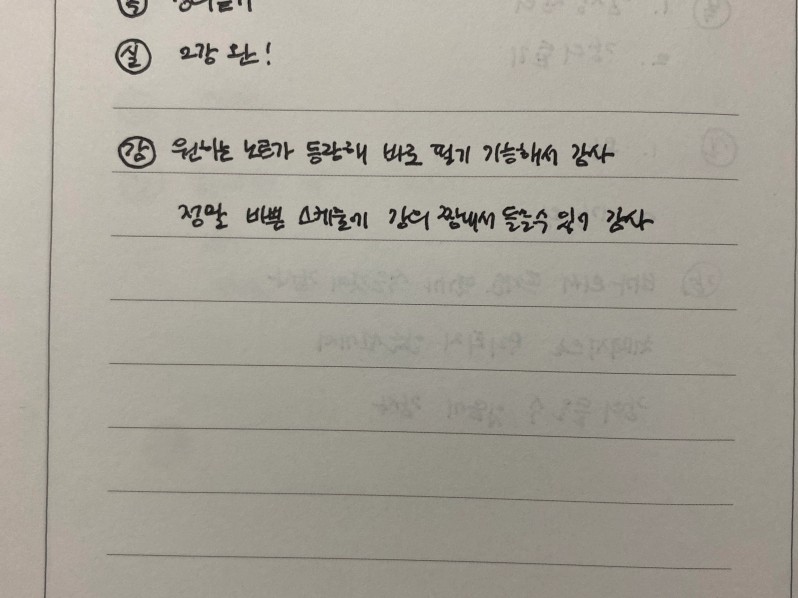 실 2강 완!
감 원하는 노트가 등장해 바로 필기 가능해서 감사
정말 바쁜 스케줄에 강의 짬내서 들을 수 있어 감사